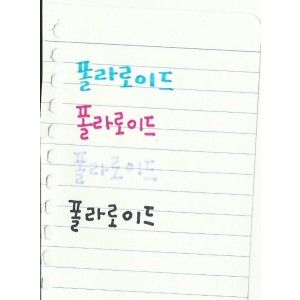 폴라로이드
폴라로이드
폴라로이드
폴라로이드